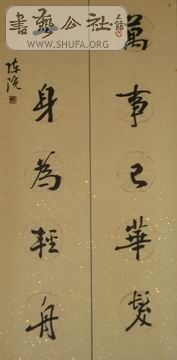 萬事已華髮
身為輕舟
陳浣
書藝公社
WWW.SHUFA.ORG